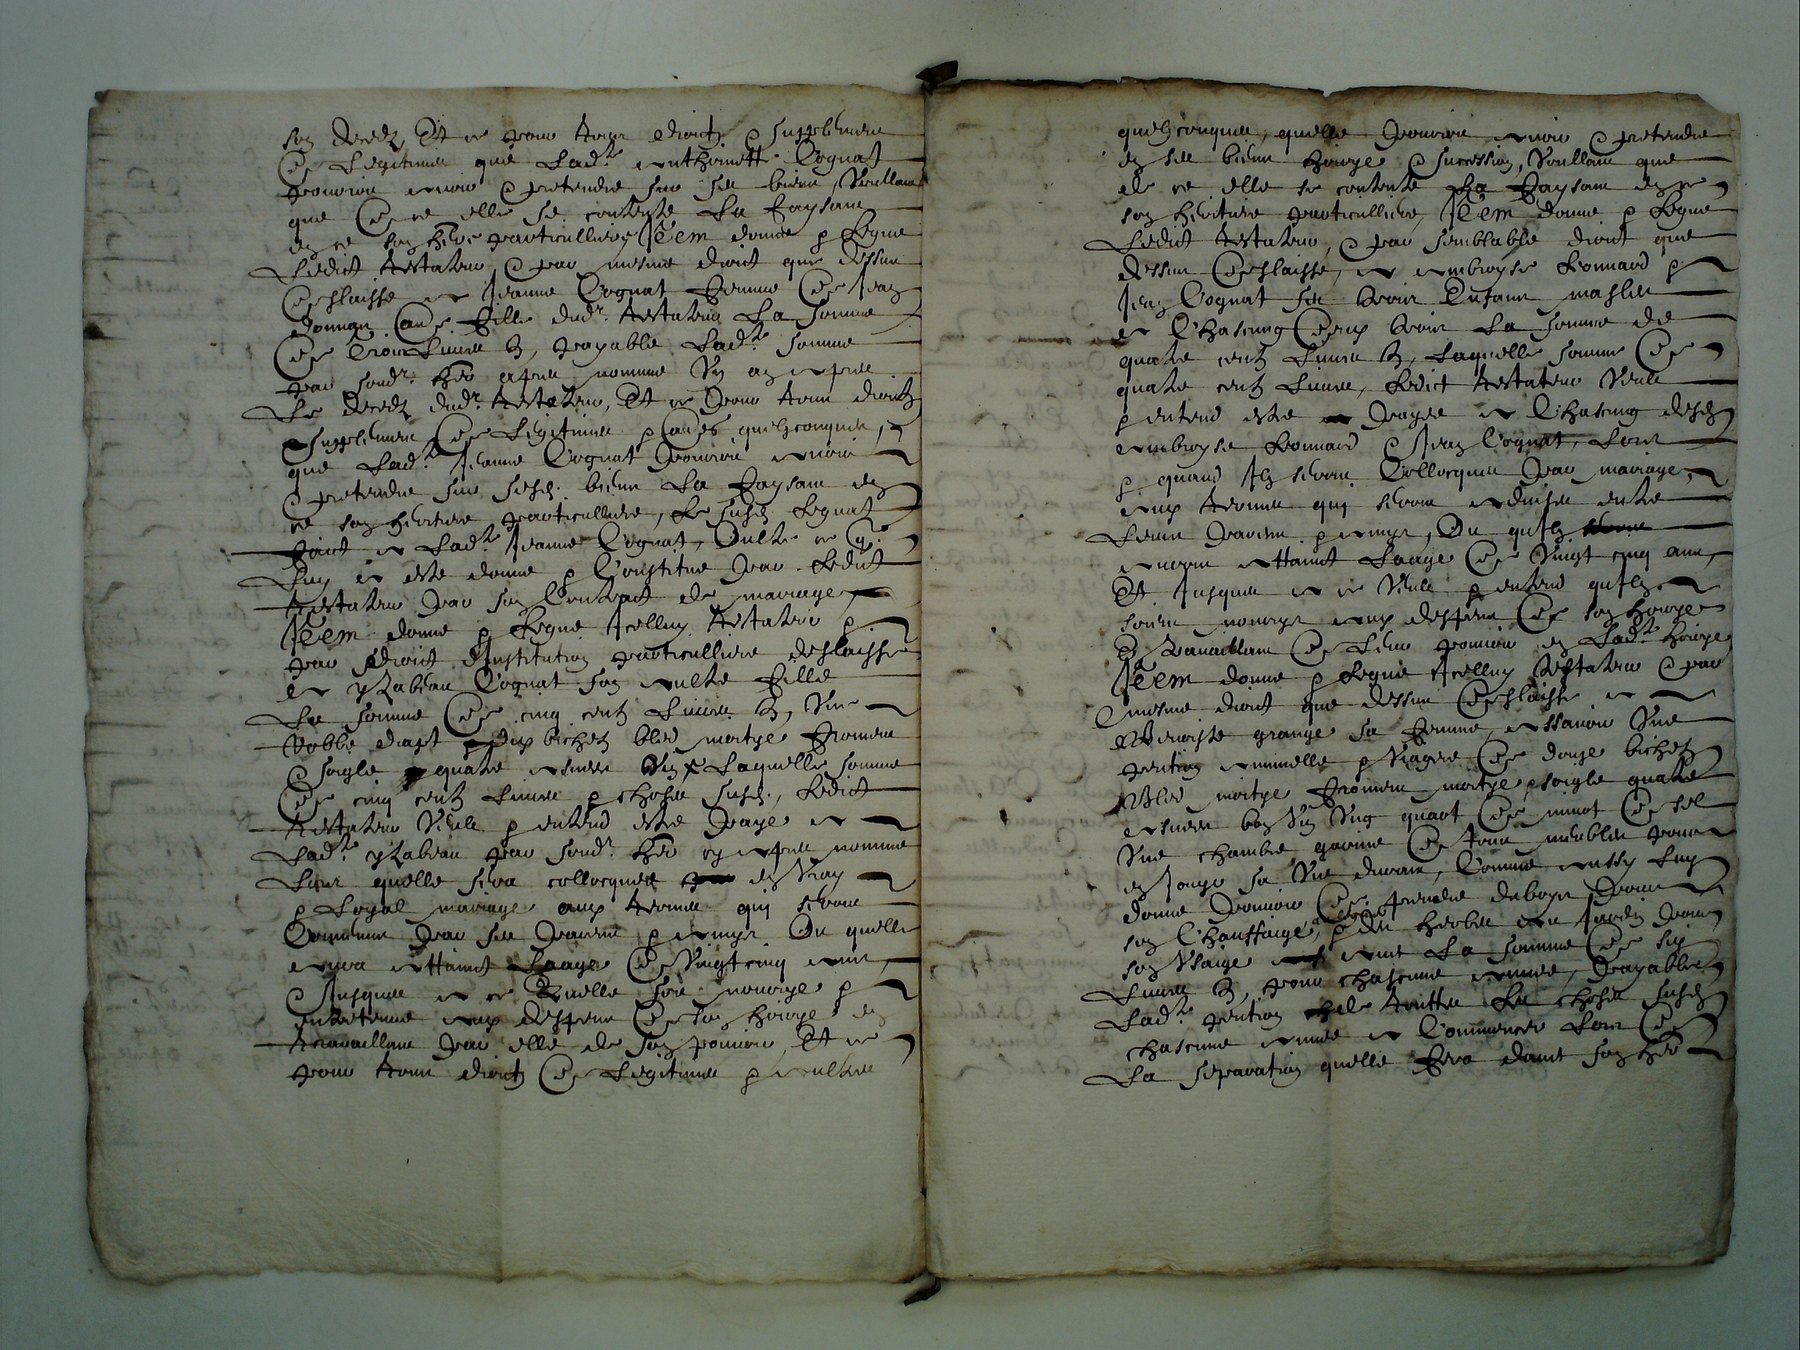 son decedz Et ce pour tous droictz & supplement
de Legitime que Lad.te Anthoinette Cognat
pourroit avoir & pretendre sur ses biens, Voullant
que de ce elle se contente La faysant
en ce son here particulliere, Item donne & Legue
Ledict testateur & par mesme droict que dessus
delaisse a Jeanne Cognat femme de Jean
fille dud.t testateur La somme
de trois Livres tz, payable Lad.te somme
par sond.t her apres nomme Un an apres
Le decedz dud.t testateur, Et ce pour tous droictz
supplement de Legitime & aultres quelzconques,
que Lad.te Jeanne Cognat pourroit avoir
& pretendre sur sesd. biens La faysant en
ce son heritiere particulliere, Le susd. Legnat
faict a Lad.te Jeanne Cognat, Oultre ce que
Luy a este donne & Constitue par Ledict
testateur par son Contract de mariage,
Item donne & Legue Icelluy testateur &
par droict d'Institution particulliere delaisse
a Yzabeau Cognat son aultre fille
La somme de cinq centz Livres tz, Une
Robbe drapt dix bichetz bled moitye froment
& soigle quatre asnees Vin Laquelle somme
de cinq centz Livres & choses susd., Ledict
testateur Veult & entend estre paye a
Lad.te Yzabeau par sond.t her cy apres nomme
Lors quelle sera collocquee en Vray
& Loyal mariage aux termes qui seront
Convenus par ses parens & amys Ou quelle
aura attainct Laage de Vingt cinq ans,
& Jusques a ce Quelle soit nourrye &
entretenue aux despens de son hoirye en
travaillant par elle de son pouvoir, Et ce
pour tous droictz de Legitime & aultres
quelzconques, quelle pourroit avoir & pretendre
en ses biens hoirye & succession, Voullant que
de ce elle se contente La faysant en ce
son heritiere particulliere, Item donne & Legue
Ledict testateur, & par semblable droict que
dessus delaisse, a Ambroyse Leonnard &
Jean Cognat ses trois Enfans masles
a Chascung deux trois La somme de
quatre centz Livres tz, Laquelle somme de
quatre centz Livres, Ledict testateur Veult
& entend estre payee a Chascung desd.
Ambroyse Leonnard & Jean Cognat, Lors
& quand Ilz seront Collocques par mariage,
aux termes qui seront advisez entre
Leurs parens & amys, Ou quilz
auront attainct Laage de Vingt cinq ans,
Et Jusques a ce Veult & entend quilz
soient nourrys aux despens de son hoirye
En travaillant de Leur pouvoir en Lad.te hoirye,
Item donne & Legue Icelluy testateur & par
mesme droict que dessus delaisse a
grange sa femme, assavoir Une
pention annuelle & Viagere de douze bichetz
bled moitye froment moitye soigle quatre
asnees bon Vin Ung quart de minot de sel
Une chambre garnie de tous meubles pour
en Jouyr sa Vie durant, Comme aussy Luy
donne pouvoir de prendre du boys pour
son Chauffaige, & des herbes au Jardin pour
son Usaige avec La somme de six
Livres tz, pour chascune annee, payable
Lad.te pention de toutes Les choses susd.
chascune annee a Commencer Lors de
La separation quelle fera davec son her